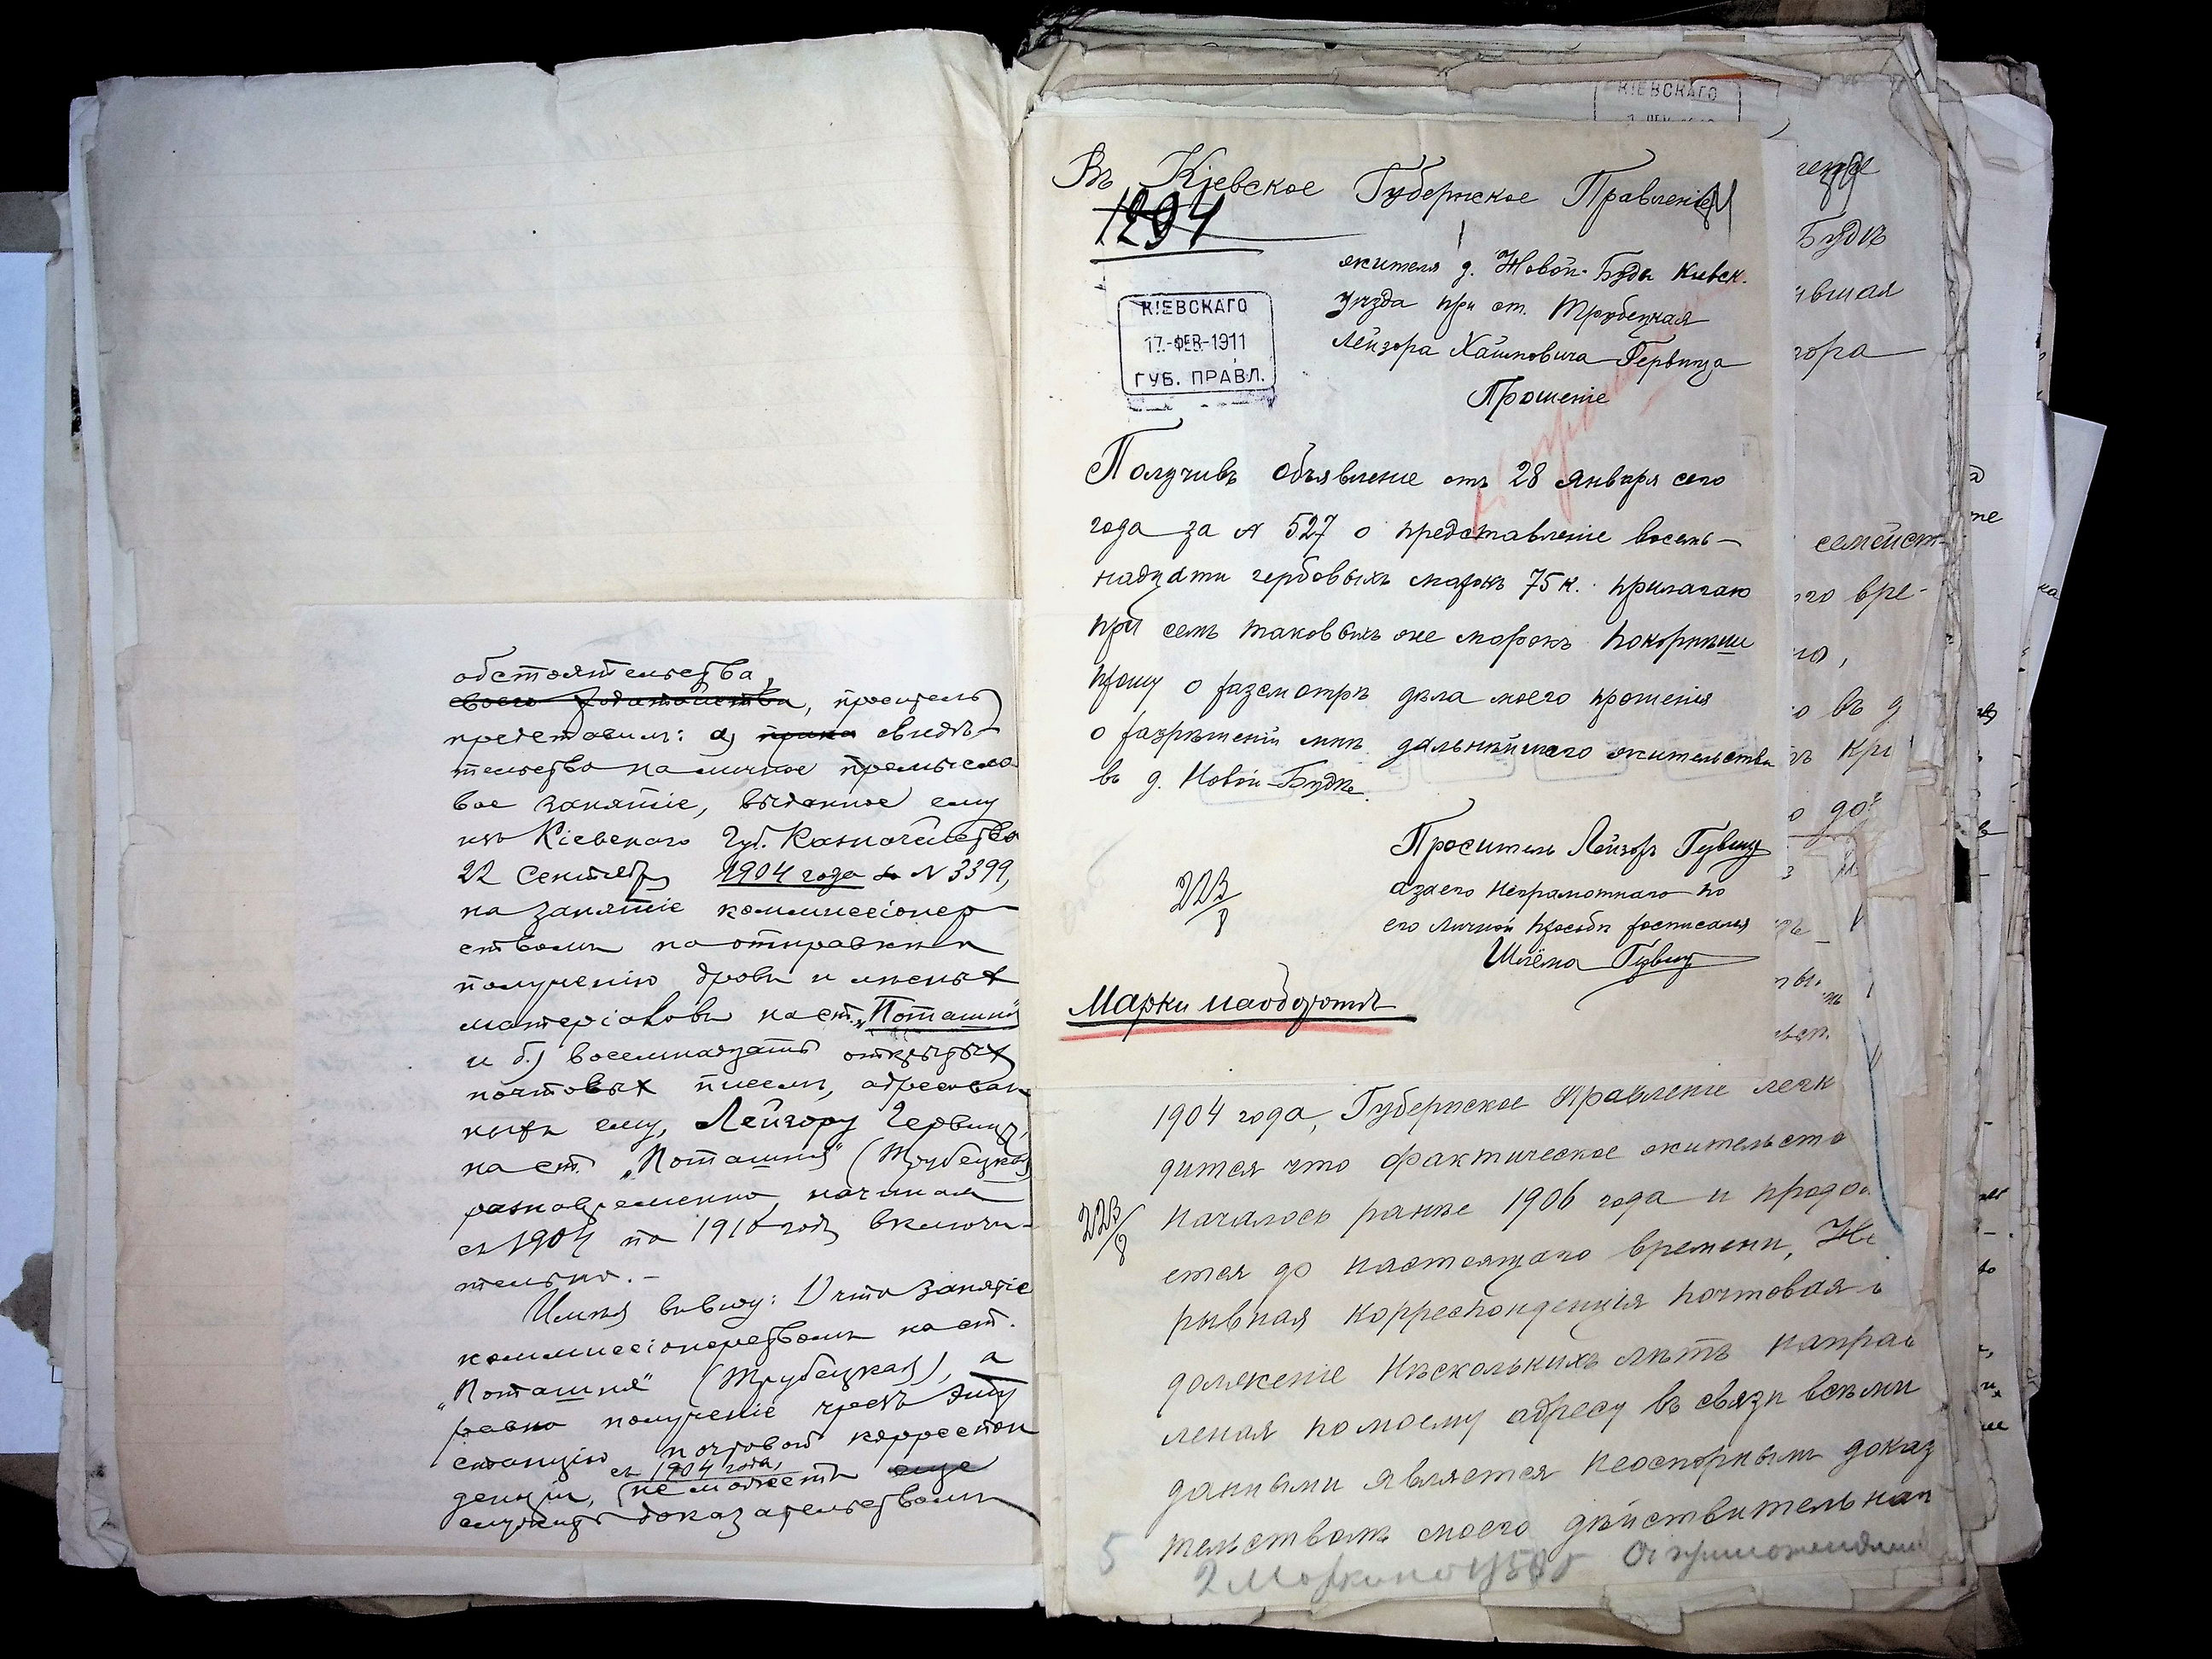 обстоятельства,
своего ходатайства, проситель
представилъ: а) права свидѣ-
тельство на личное промысло-
вое занятіе, выданное ему
изъ Кіевскаго Губ. Казначейства
22 Сентября 1904 года за N 3399,
на занятіе коммиссіонер-
ствомъ по отправкѣ и
полученію дровъ и лѣсныхъ
матеріаловъ на ст. „Поташня"
и б) восемнадцать открытыхъ
почтовыхъ писемъ, адресован-
ныхъ ему, Лейзору Гервицу,
на ст. „Поташня" (Трубецкая)
разновременно, начиная
съ 1904 по 1910 годъ включи-
тельно.-
Имѣя ввиду: 1) что занятіе
коммиссіонерствомъ на ст.
„Поташня" (Трубецкая), а
равно полученіе чрезъ эту
станцію почтовой корреспон
съ 1904 года,
денціи, не можетъ еще
служить доказательствомъ
Въ Кіевское Губернское Правленіе
1294
жителя д. Новой-Буды Киевск.
уезда при ст. Трубецкая
Лейзора Хаимовича Гервица
Прошеніе
КІЕВСКАГО
17-ФЕВ-1911
ГУБ. ПРАВЛ.
Получивъ объявленіе отъ 28 Января сего
года за N 527 о представленіе восем-
надцати гербовыхъ марокъ 75 к. прилагаю
при семъ таковыхъ же марокъ покорнѣйше
прошу о разсмотрѣ дѣла моего прошенія
о разрѣшеніи мнѣ дальнѣйшаго жительства
въ д. Новой-Будѣ.
Проситель Лейзоръ Гувиц
а за его неграмотнаго по
его личной просьбѣ росписался
Шлёма Гувиц
223/8
Марки наоборотѣ
1904 года, Губернское Правленіе
дится что фактическое жительство
началось ранѣе 1906 года и продол
223/8
ется до настоящаго времени, Не
рывная корреспонденція почтовая
долженіе нѣсколькихъ лѣтъ направ
леная по моему адресу въ связи всѣми
данными является неоспорнымъ доказ
тельствомъ моего дѣйствительнаго
5
2 Марки по
КІЕВСКАГО
Будѣ
семейст-
го вре-